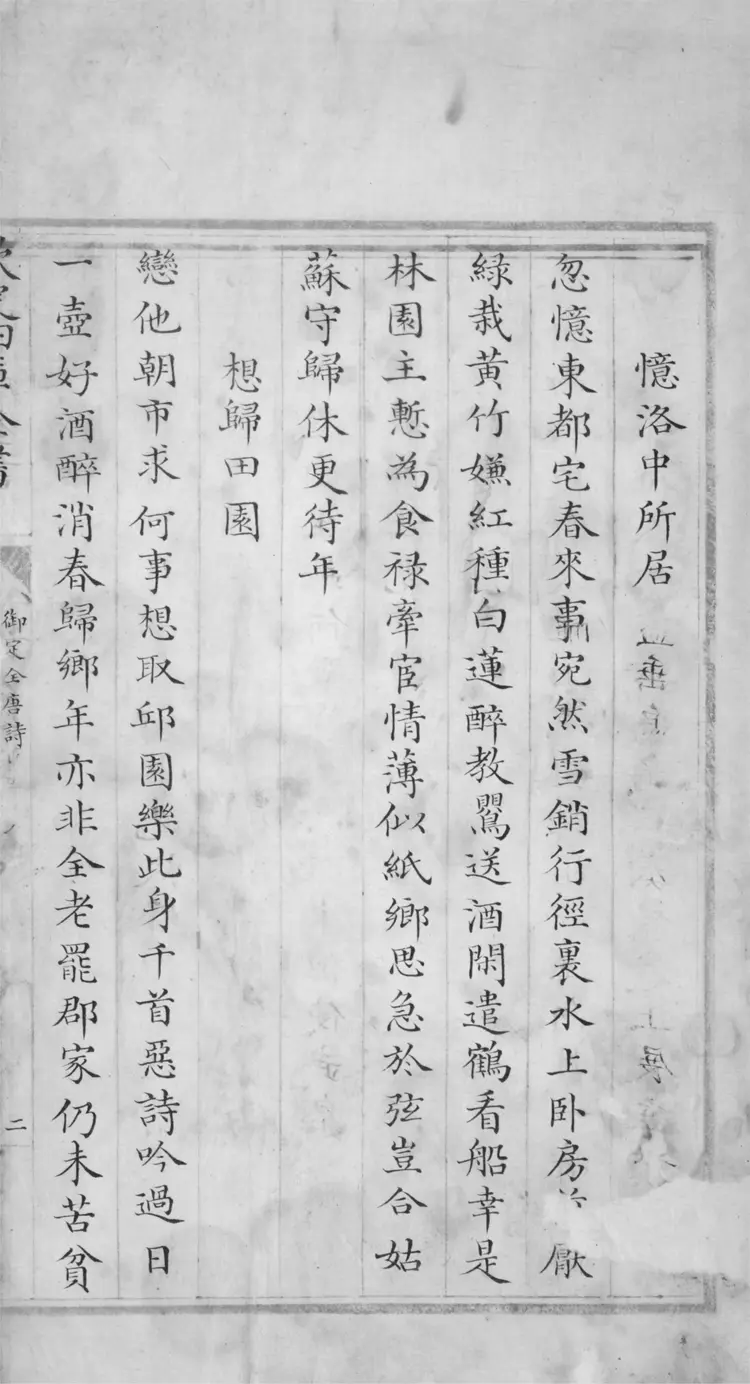 憶洛中所居
忽憶東都宅春來事宛然雪銷行徑裏水上卧房 厭
緑栽黄竹嫌紅種白蓮醉教鸎送酒閑遣鶴看船幸是
林園主慙為食禄牽宦情薄似紙鄉思急於弦豈合姑
蘇守歸休更待年
想歸田園
戀他朝市求何事想取邱園樂此身千首惡詩吟過日
一壺好酒醉消春歸鄉年亦非全老罷郡家仍未苦貧
御定全唐詩
二